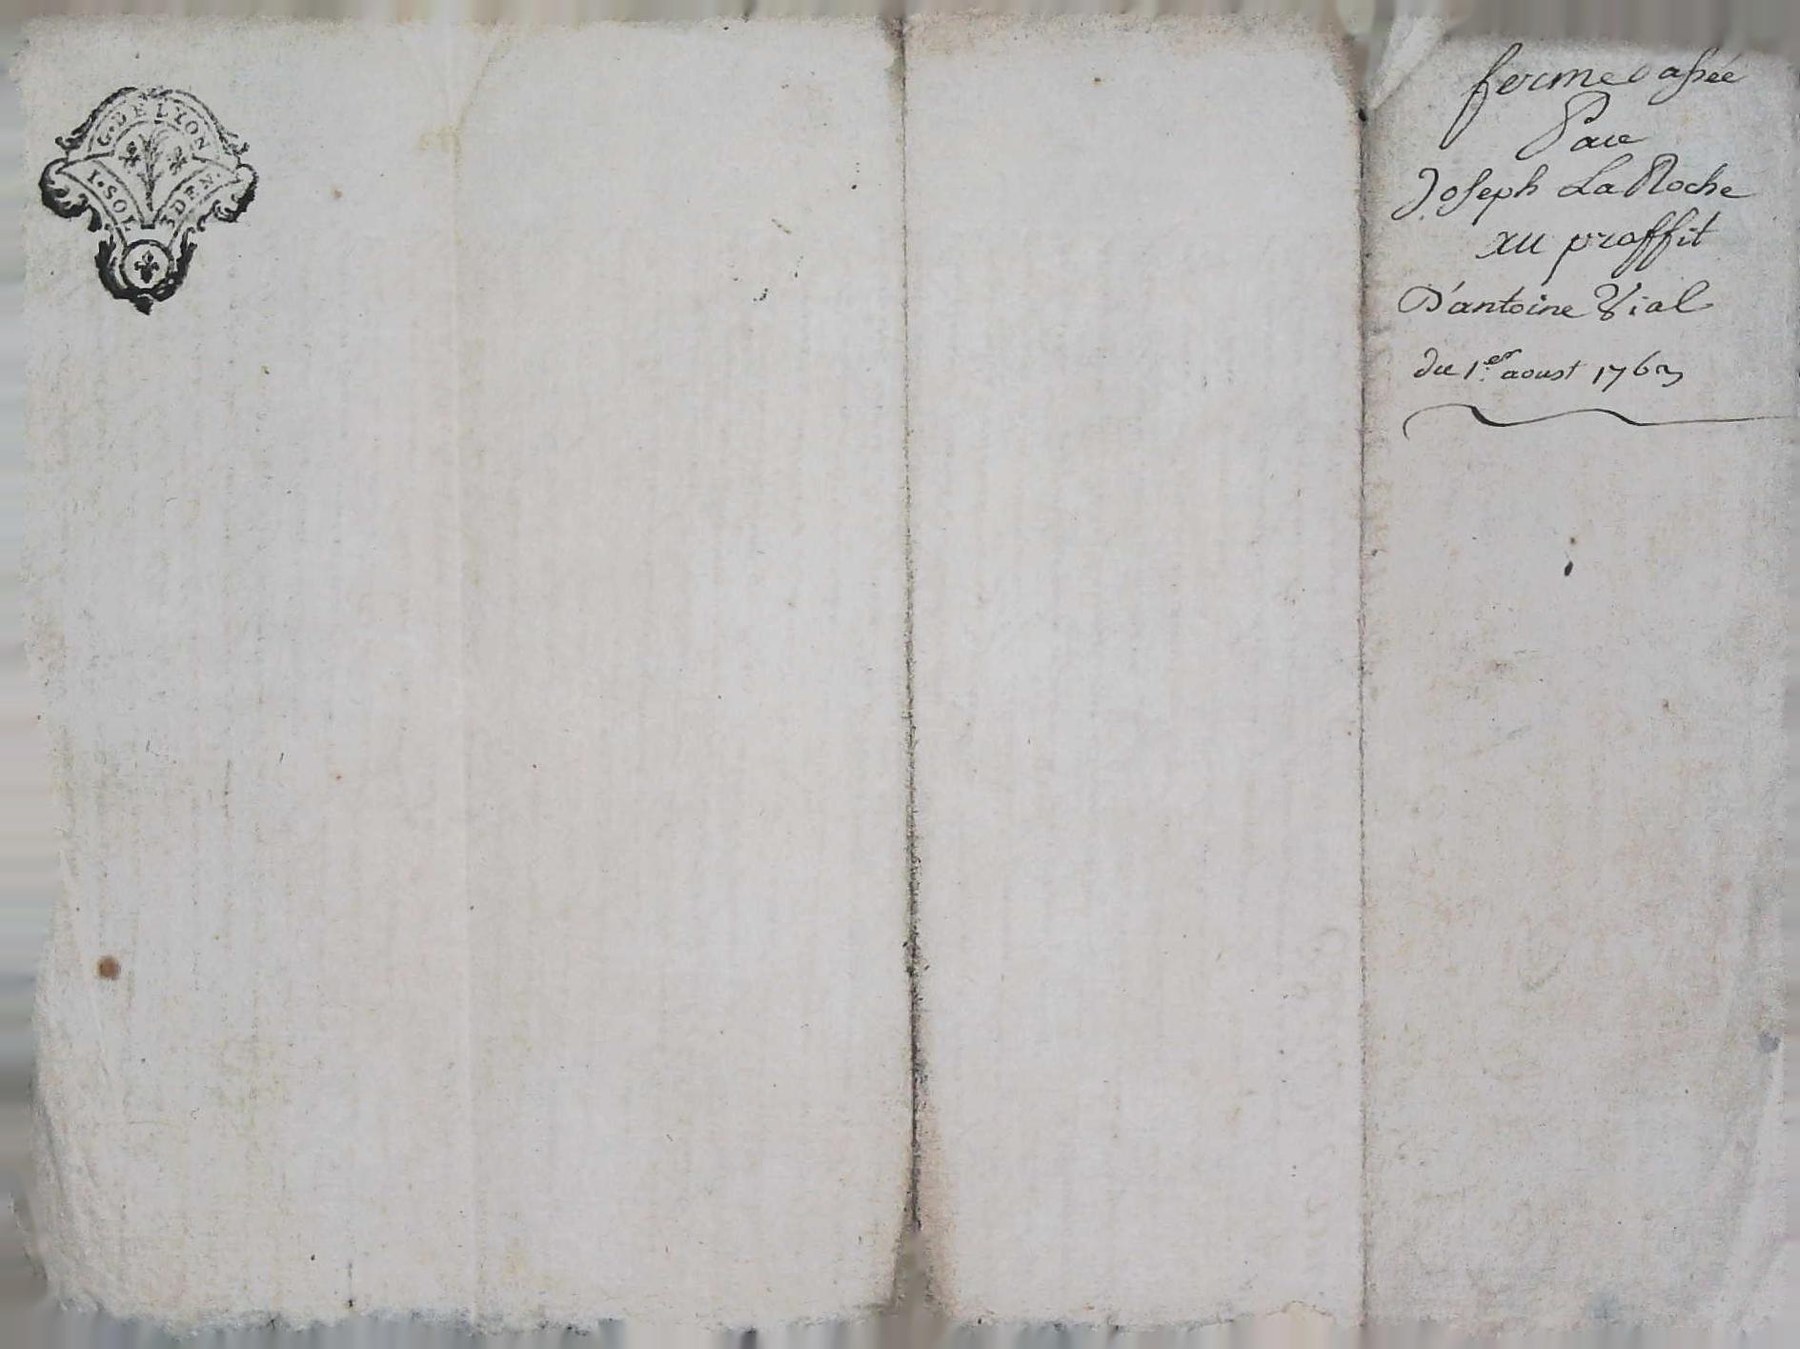 G. DE LYON
1. SOL 3 DEN.
ferme passée
Par
Joseph LaRoche
au proffit
D'antoine Vial
du 1.er aoust 1763